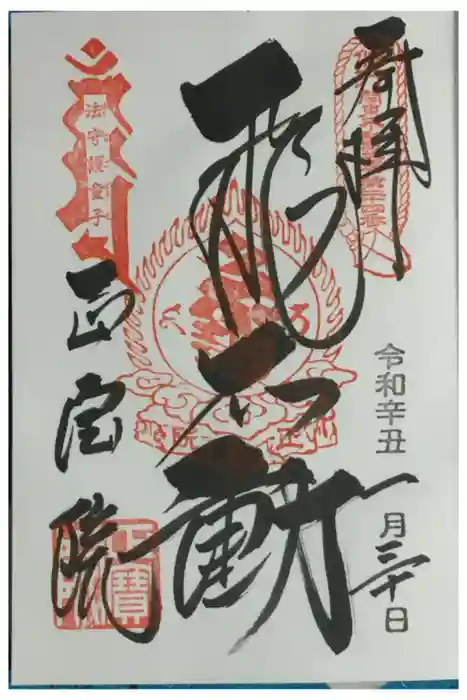 奉拝
令和辛丑
一月三十日
飛不動
法守護童子
正宝院